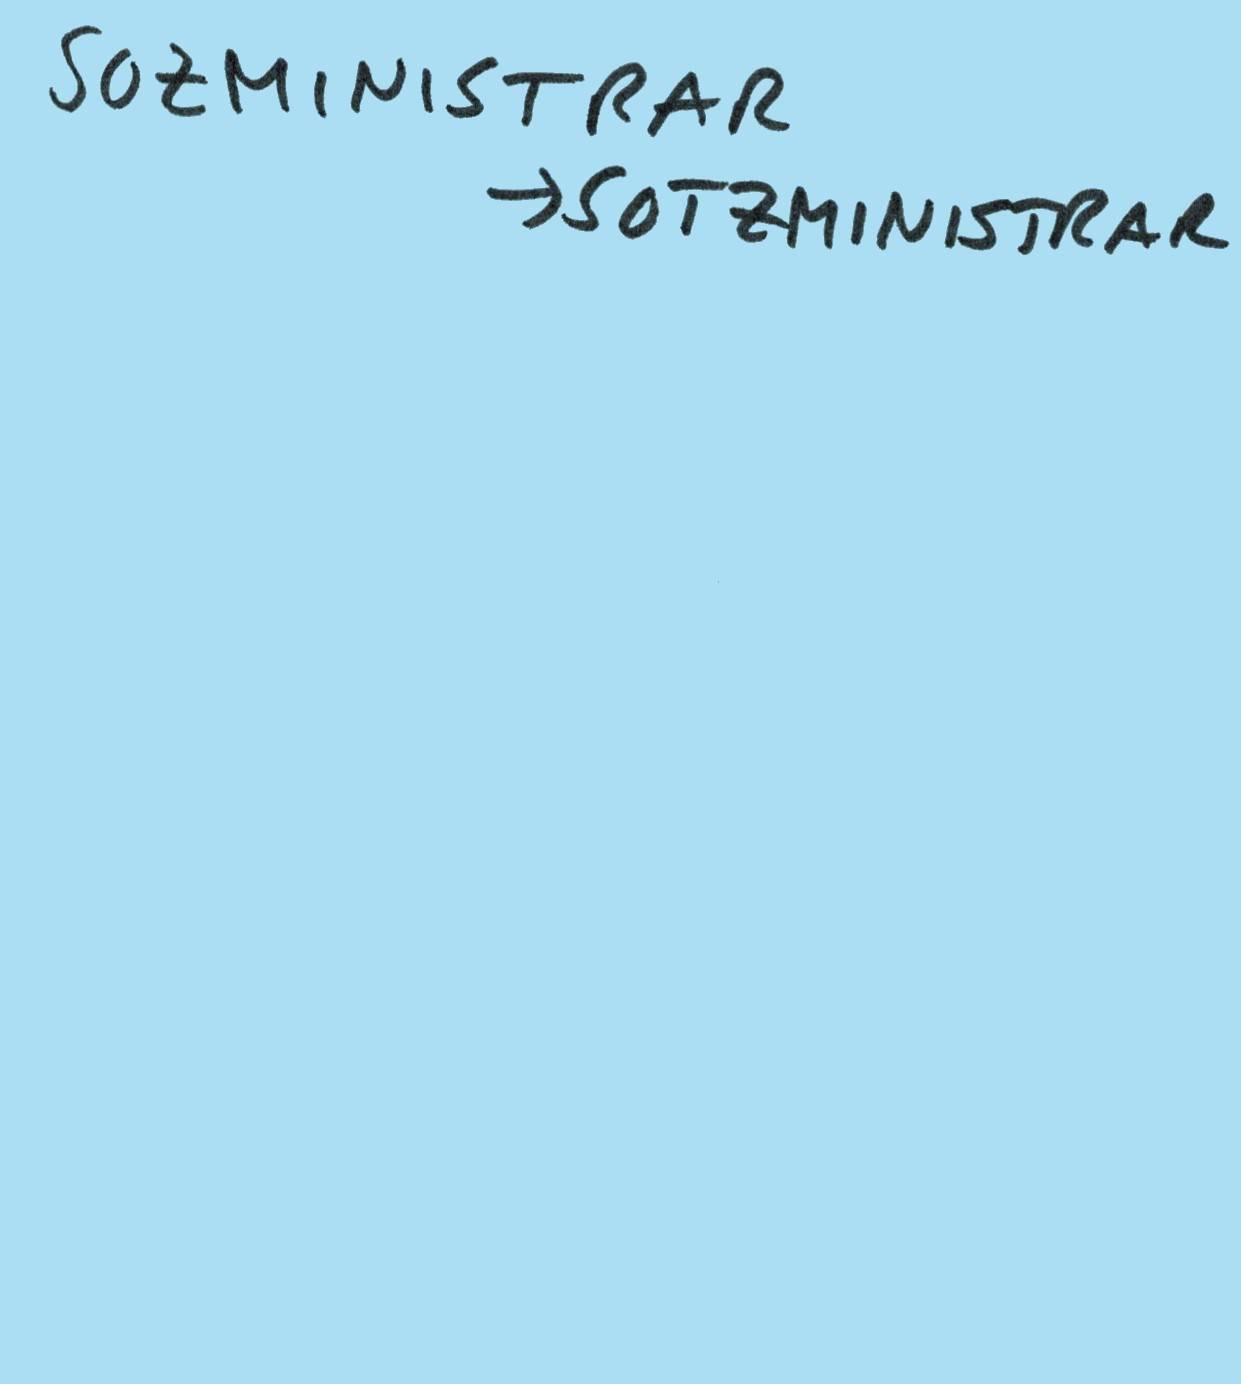 SOZMINISTRAR
→SOTZMINISTRAR